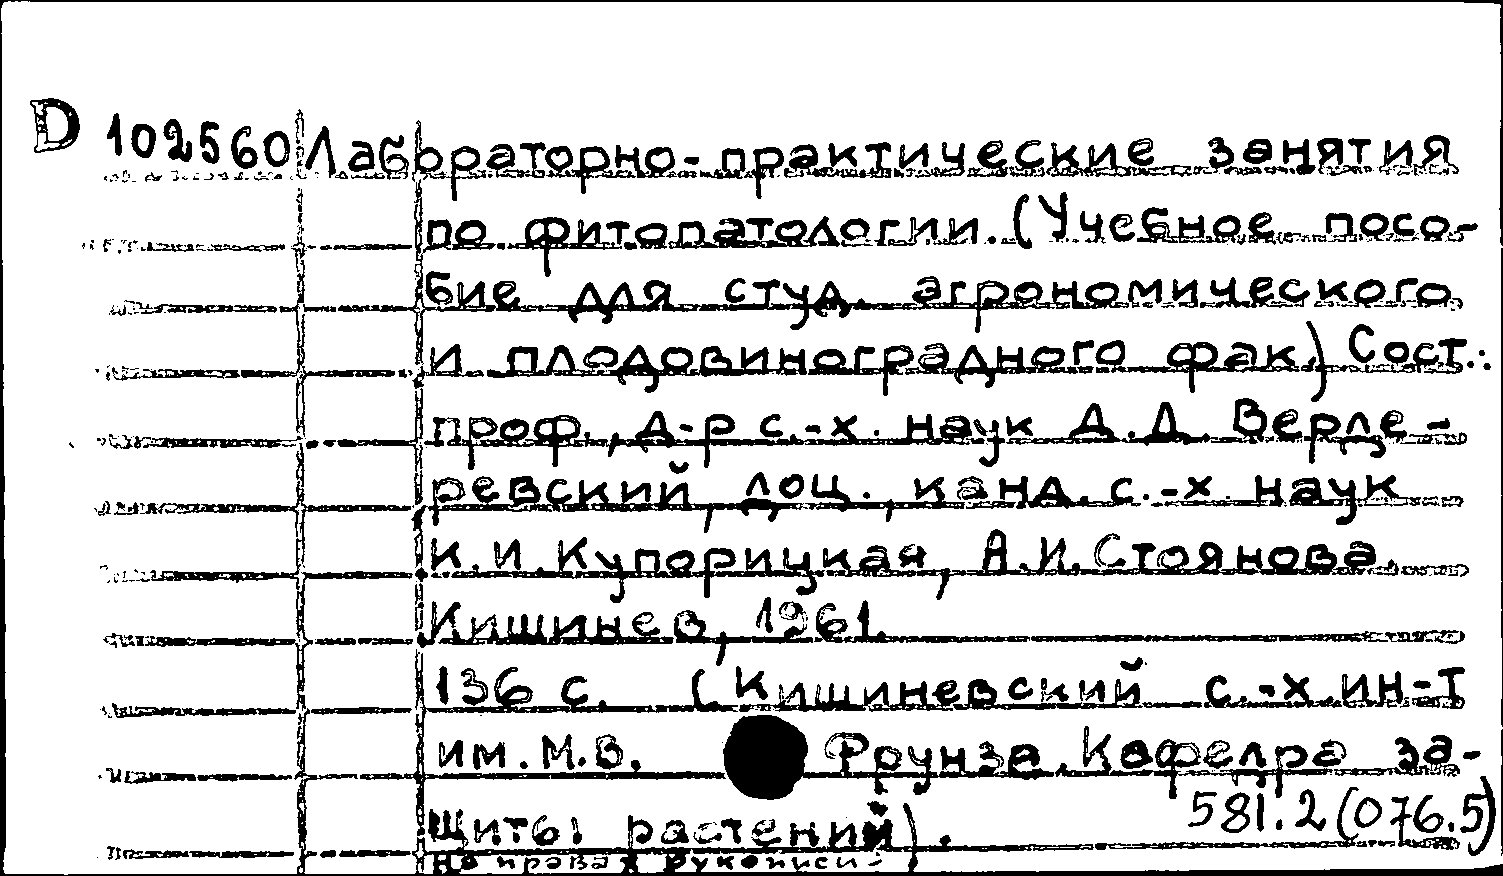 D 102560 Лабораторно-практические занятия
по фитопатологии. (Учебное посо-
бие для студ. агрономического
и плодовиноградного фак.) Сост.:
проф., д-р с.-х. наук Д.Д. Верде-
ревский, доц., канд. с.-х. наук
К.И. Купорицкая, А.И. Стоянова.
Кишинев, 1961.
136 с. (Кишиневский с.-х. ин-т
им. М.В. Фрунзе. Кафедра за-
щиты растений).
581.2(076.5)
На правах рукописи.